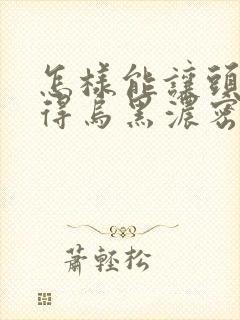 怎樣能讓頭
得烏黑濃密
蕭輕松